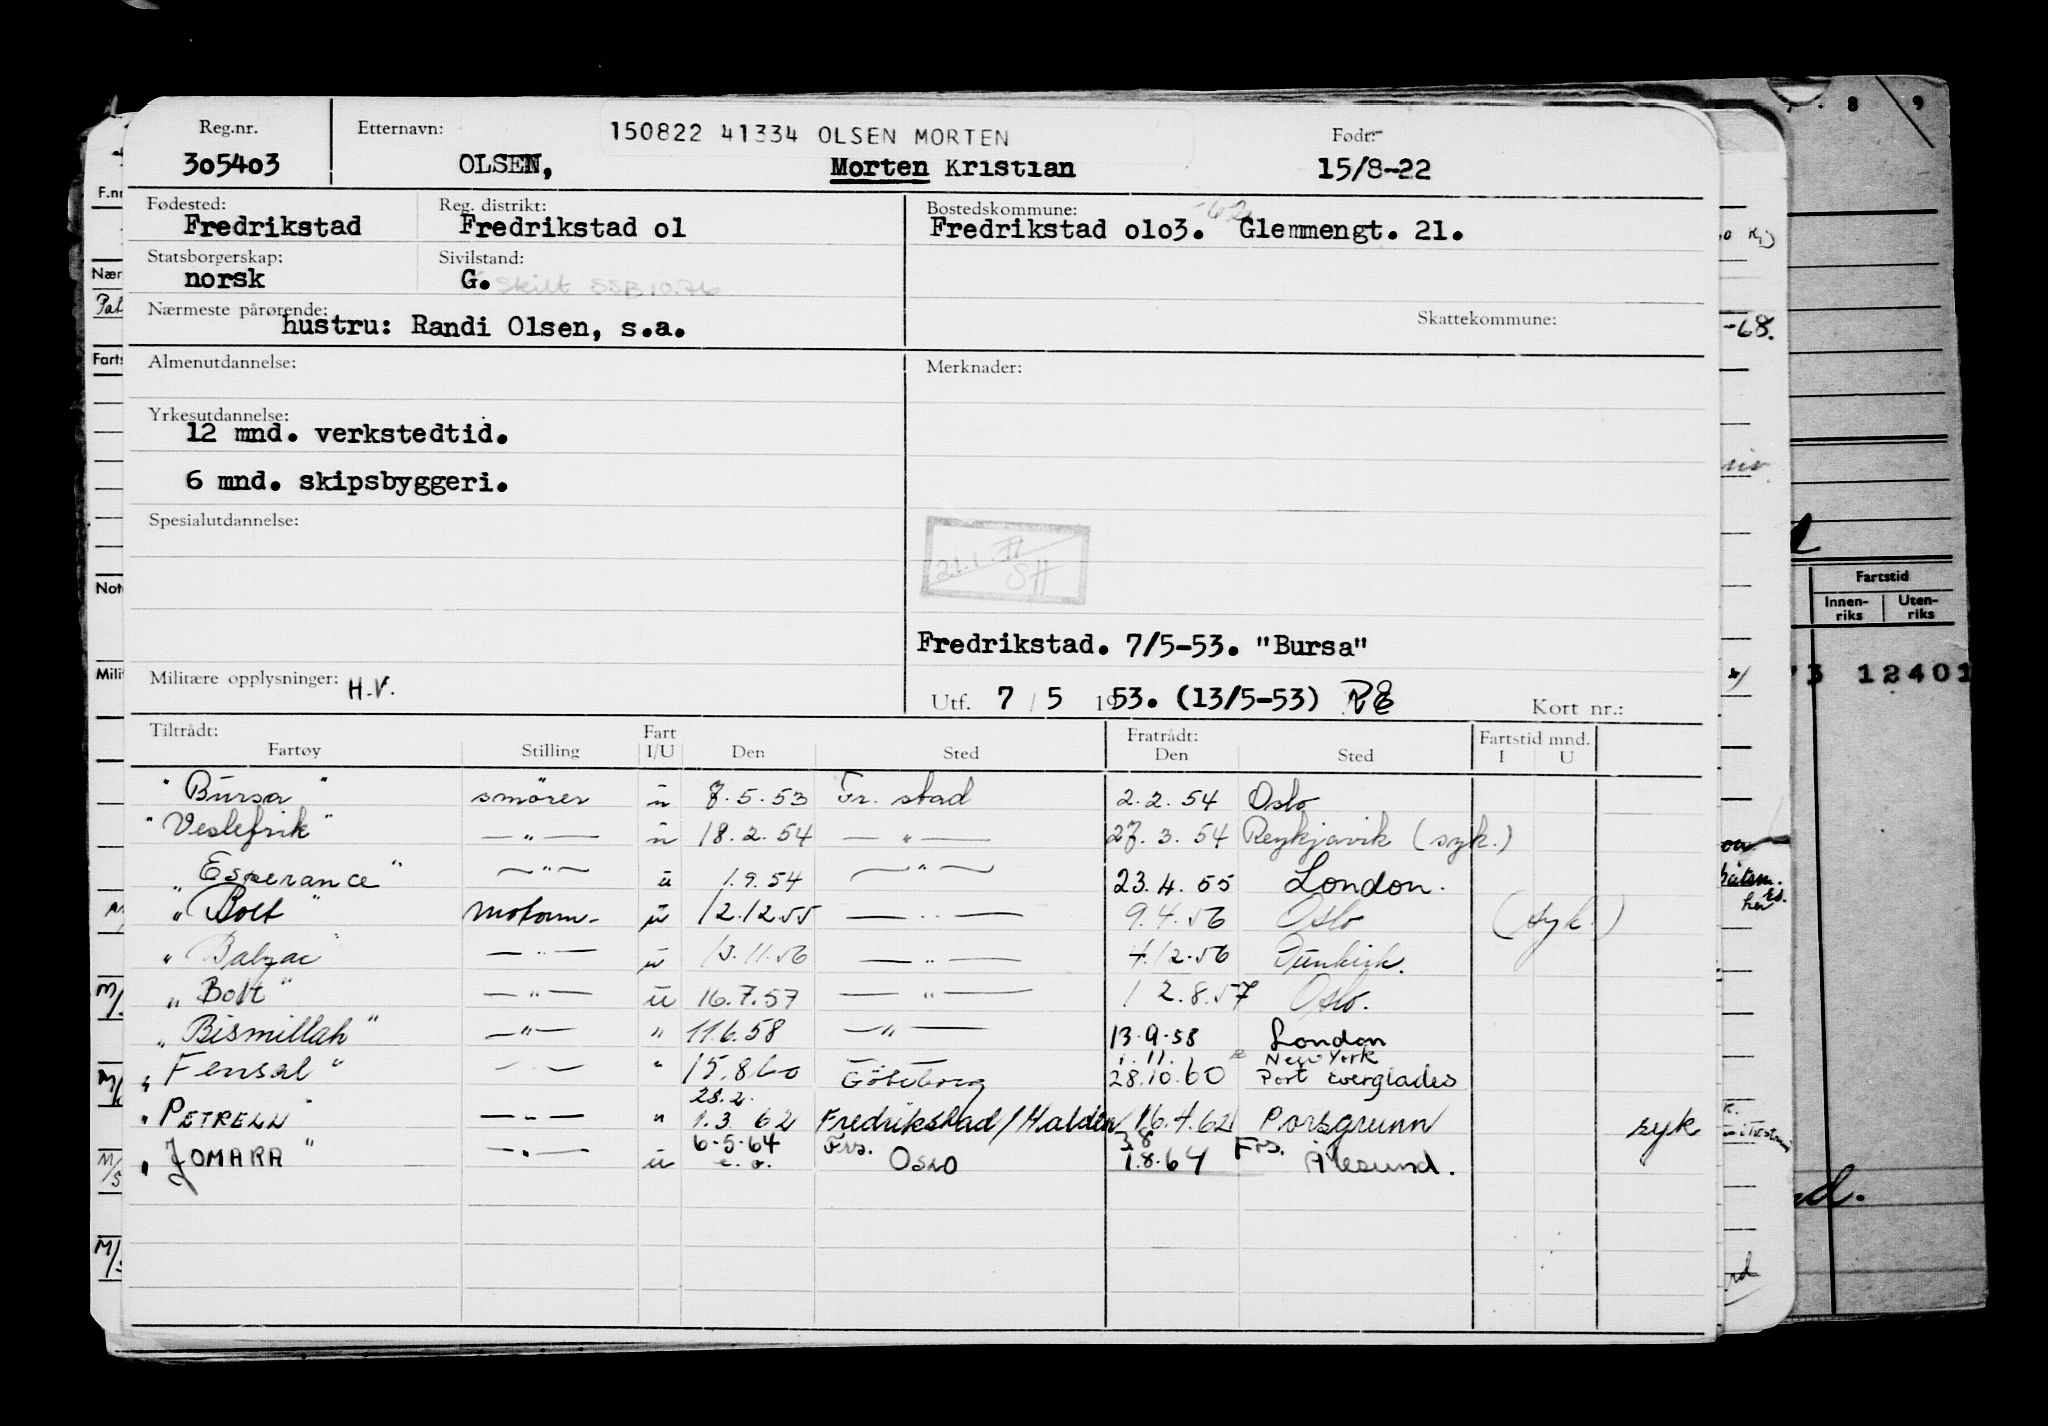 Reg.nr. Etternavn: 150822 41334 OLSEN MORTEN Født:
305403 OLSEN, Morten Kristian 15/8-22
Fødested: Reg. distrikt: Bostedskommune: -62
Fredrikstad Fredrikstad 01 Fredrikstad 0103. Glemmengt. 21.
Statsborgerskap: Sivilstand:
norsk G. Skilt SSB 10.76
Nærmeste pårørende: Skattekommune:
hustru: Randi Olsen, s.a.
Almenutdannelse: Merknader:
Yrkesutdannelse:
12 mnd. verkstedtid.
6 mnd. skipsbyggeri.
Spesialutdannelse:
SH
Fredrikstad. 7/5-53. "Bursa"
Militære opplysninger: H.V.
Utf. 7 / 5 1953. (13/5-53) Kort nr.:
Tiltrådt: Fart Fratrådt: Fartstid mnd.
Fartøy Stilling I/U Den Sted Den Sted I U
"Bursa" smører u 7.5.53 Fr. stad 2.2.54 Oslo
"Veslefrik" — " — u 18.2.54 — " — 27.3.54 Reykjavik (syk.)
"Esperance" — " — u 1.9.54 — " — 23.4.55 London.
"Bolt" motorm. u 12.12.55 — " — 9.4.56 Oslo (syk.)
"Balzac" — " — u 13.11.56 — " — 4.12.56 Dunkirk.
"Bolt" — " — u 16.7.57 — " — 12.8.57 Oslo.
"Bismillah" — " — " 11.6.58 — " — 13.9.58 London
1.11. New York
"Fensal" — " — " 15.8.60 Göteborg 28.10.60 Port Everglades
28.2.
"PETRELL" — " — " 1.3 62 Fredrikstad/Halden 16.4.62 Porsgrunn syk
6-5-64 Frs. 3.8 Frs.
"JOMARA" — " — u e.o. Oslo 1.8.64 Ålesund.
F.nr
Nær
Farts
Not
Milit
M/
M/
M/S
M/S
8 9
-68.
Fartstid
Innen-riks Uten-riks
73 12401